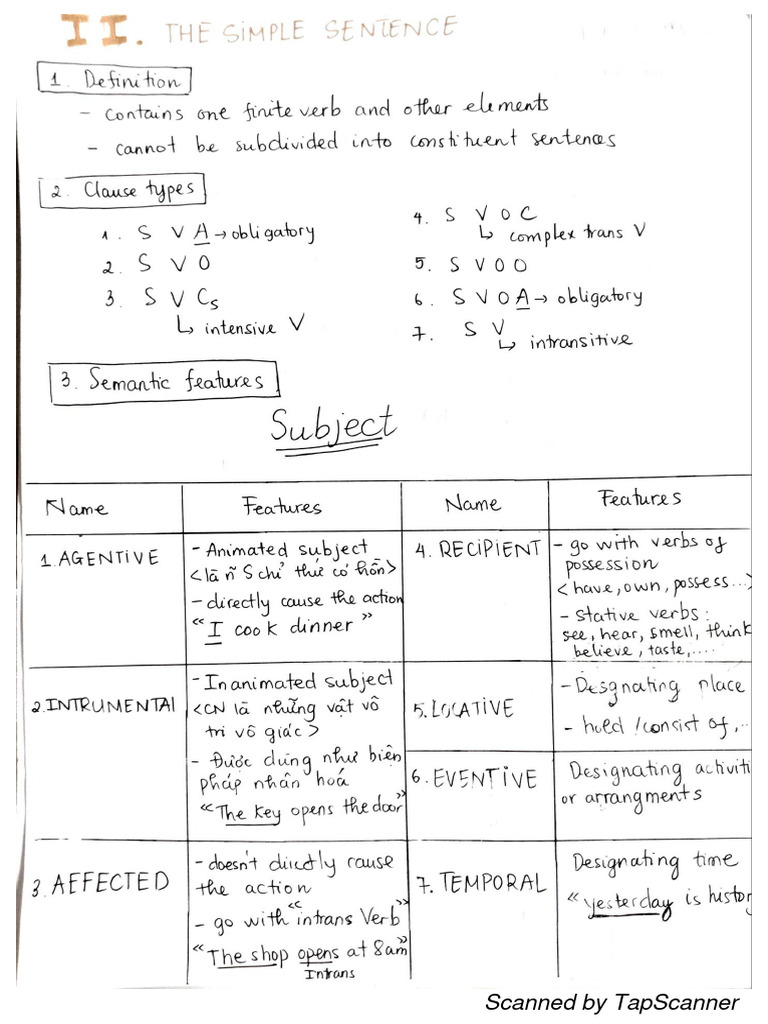 II. THE SIMPLE SENTENCE
1. Definition
- contains one finite verb and other elements
- cannot be subdivided into constituent sentences
2. Clause types
1. S V A → obligatory
2. S V O
3. S V Cs
↳ intensive V
4. S V O C
↳ complex trans V
5. S V O O
6. S V O A → obligatory
7. S V
↳ intransitive
3. Semantic features
Subject
Name
Features
Name
Features
1. AGENTIVE
- Animated subject
<là ~ S chỉ thứ có hồn>
- directly cause the action
“I cook dinner”
4. RECIPIENT
- go with verbs of
possession
<have, own, possess...>
- stative verbs:
see, hear, smell, think
believe, taste,....
2. INTRUMENTAL
- Inanimated subject
<CN là những vật vô
tri vô giác>
- Được dùng như biện
pháp nhân hoá
“The key opens the door”
5. LOCATIVE
- Desgnating place
- hold / consist of,..
6. EVENTIVE
Designating activiti
or arrangments
3. AFFECTED
- doesn't directly cause
the action
- go with “intrans Verb”
“The shop opens at 8am”
Intrans
7. TEMPORAL
Designating time
“yesterday is histor
Scanned by TapScanner